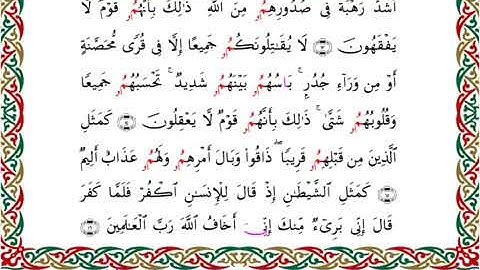 أَشَدُّ رَهْبَةً فِى صُدُورِهِمُۥ مِنَ اَللَّهِ ذَٰلِكَ بِأَنَّهُمُۥ قَوْمٌ لَا
يَفْقَهُونَ لَا يُقَٰتِلُونَكُمُۥ جَمِيعًا إِلَّا فِى قُرًى مُحَصَّنَةٍ
أَوْ مِن وَرَآءِ جُدُرٍ بَاسُهُمُۥ بَيْنَهُمُۥ شَدِيدٌ تَحْسَبُهُمُۥ جَمِيعًا
وَقُلُوبُهُمُۥ شَتَّىٰ ذَٰلِكَ بِأَنَّهُمُۥ قَوْمٌ لَا يَعْقِلُونَ كَمَثَلِ
اَلَّذِينَ مِن قَبْلِهِمُۥ قَرِيبًا ذَاقُوا۟ وَبَالَ أَمْرِهِمُۥ وَلَهُمُۥ عَذَابٌ أَلِيمٌ
كَمَثَلِ اَلشَّيْطَٰنِ إِذْ قَالَ لِلْإِنسَٰنِ اِكْفُرْ فَلَمَّا كَفَرَ
قَالَ إِنِّى بَرِىٓءٌ مِنكَ إِنِّىَ أَخَافُ اُللَّهَ رَبَّ اَلْعَٰلَمِينَ